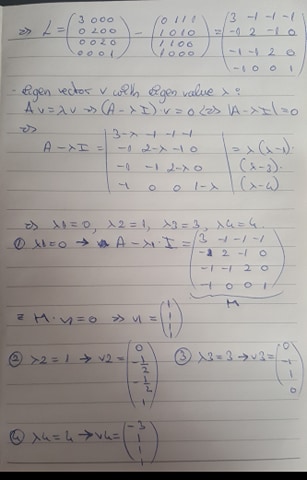 => L = (3 0 0 0 / 0 2 0 0 / 0 0 2 0 / 0 0 0 1) - (0 1 1 1 / 1 0 1 0 / 1 1 0 0 / 1 0 0 0) = (3 -1 -1 -1 / -1 2 -1 0 / -1 -1 2 0 / -1 0 0 1)
- eigen vector v with eigen value λ:
Av = λv => (A - λI) · v = 0 <=> |A - λI| = 0
=>
A - λI = | 3-λ -1 -1 -1 / -1 2-λ -1 0 / -1 -1 2-λ 0 / -1 0 0 1-λ | = λ(λ-1) · (λ-3) · (λ-4)
=> λ1 = 0, λ2 = 1, λ3 = 3, λ4 = 4
① λ1 = 0 → A - λ1 · I = (3 -1 -1 -1 / -1 2 -1 0 / -1 -1 2 0 / -1 0 0 1)
M
= M · v1 = 0 => v1 = (1 / 1 / 1 / 1)
② λ2 = 1 → v2 = (0 / -1/2 / -1/2 / 1) ③ λ3 = 3 → v3 = (0 / -1 / 1 / 0)
④ λ4 = 4 → v4 = (-3 / 1 / 1 / 1)